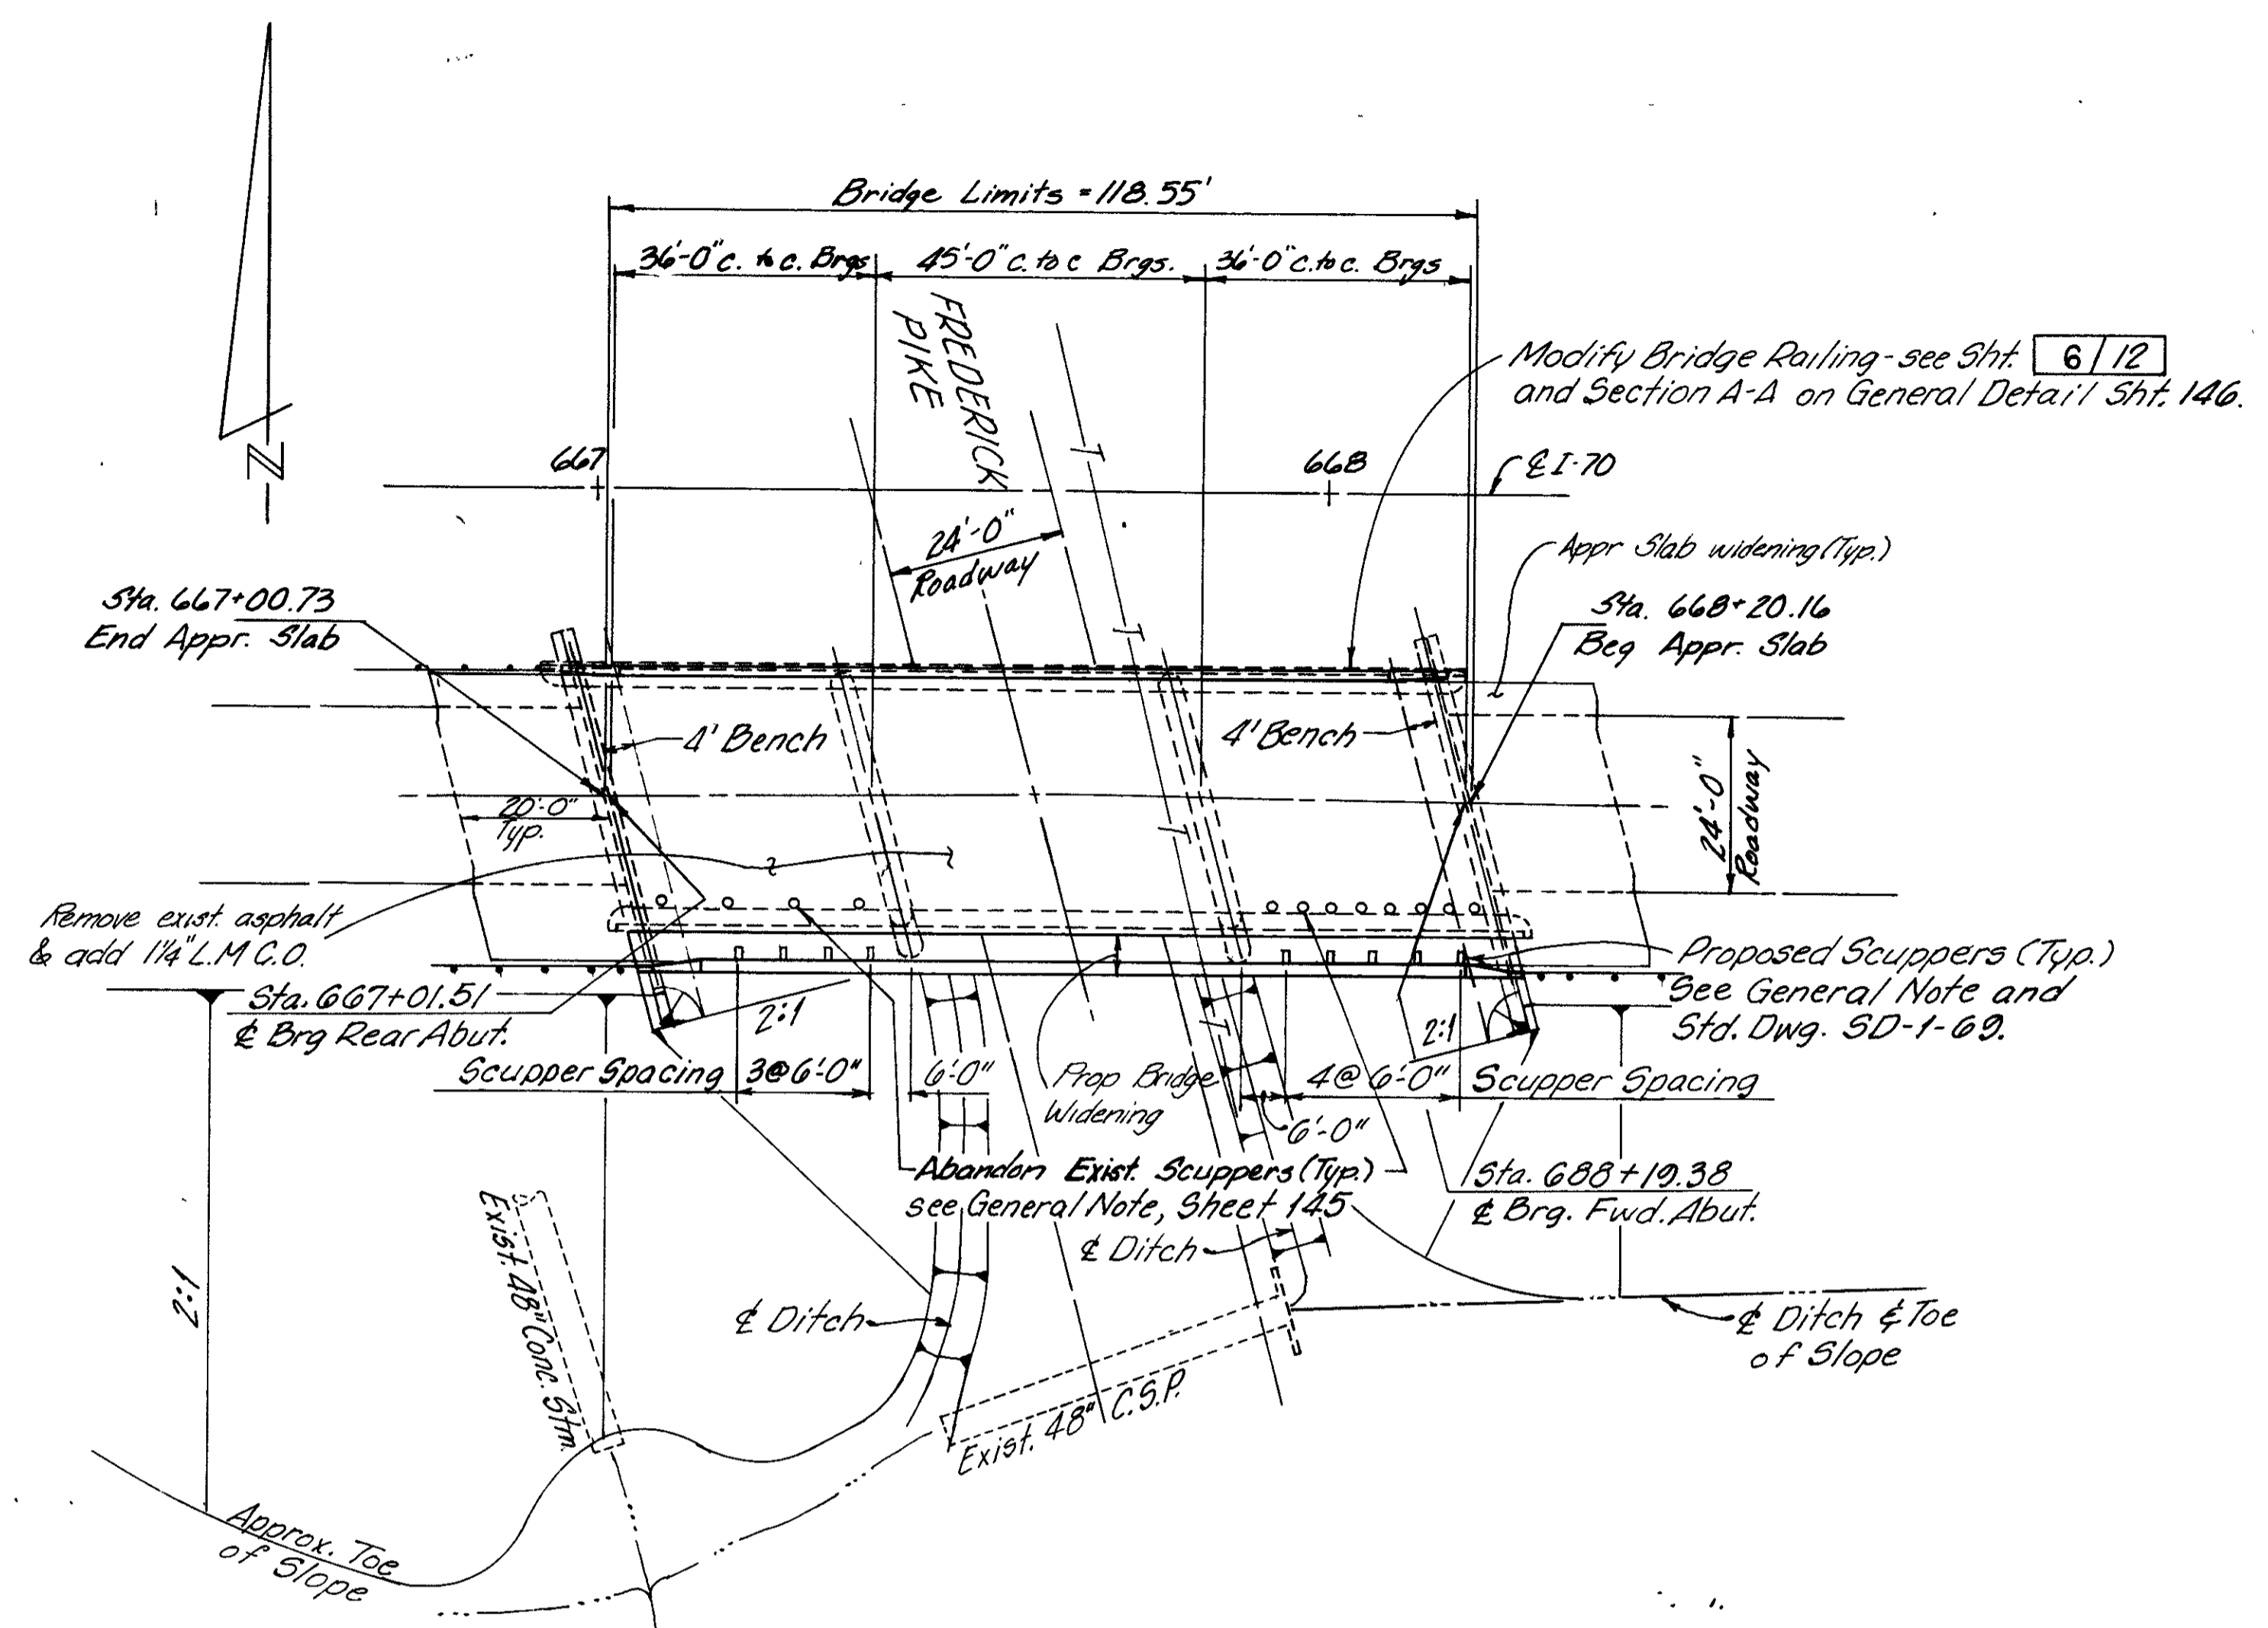 Bridge Limits = 118.55'
36'-0" c. to c. Brgs
45'-0" c. to c Brgs.
36'-0" c. to c. Brgs
FREDERICK
PIKE
Modify Bridge Railing - see Sht. 6/12
and Section A-A on General Detail Sht. 146.
N
667
668
℄ I-70
T
24'-0"
Roadway
Appr Slab widening (Typ.)
Sta. 667+00.73
End Appr. Slab
Sta. 668+20.16
Beg Appr. Slab
T
4' Bench
4' Bench
20'-0"
Typ.
24'-0"
Roadway
T
Remove exist. asphalt
& add 1¼" L.M C.O.
Proposed Scuppers (Typ.)
See General Note and
Std. Dwg. SD-1-69.
Sta. 667+01.51
℄ Brg Rear Abut.
2:1
T
2:1
Scupper Spacing
3@6'-0"
6'-0"
Prop Bridge
Widening
4@6'-0"
Scupper Spacing
6'-0"
Abandon Exist. Scuppers (Typ.)
see General Note, Sheet 145
Sta. 688+19.38
℄ Brg. Fwd. Abut.
℄ Ditch
2:1
Exist. 48" Conc. Stm.
℄ Ditch
℄ Ditch & Toe
of Slope
Exist. 48" C.S.P.
Approx. Toe
of Slope